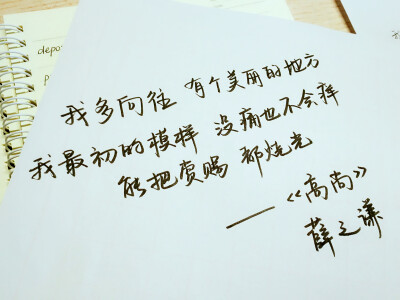 depa
我多向往 有个美丽的地方
我最初的模样 没痛也不会痒
能把赏赐 都烧光
——《高尚》
薛之谦